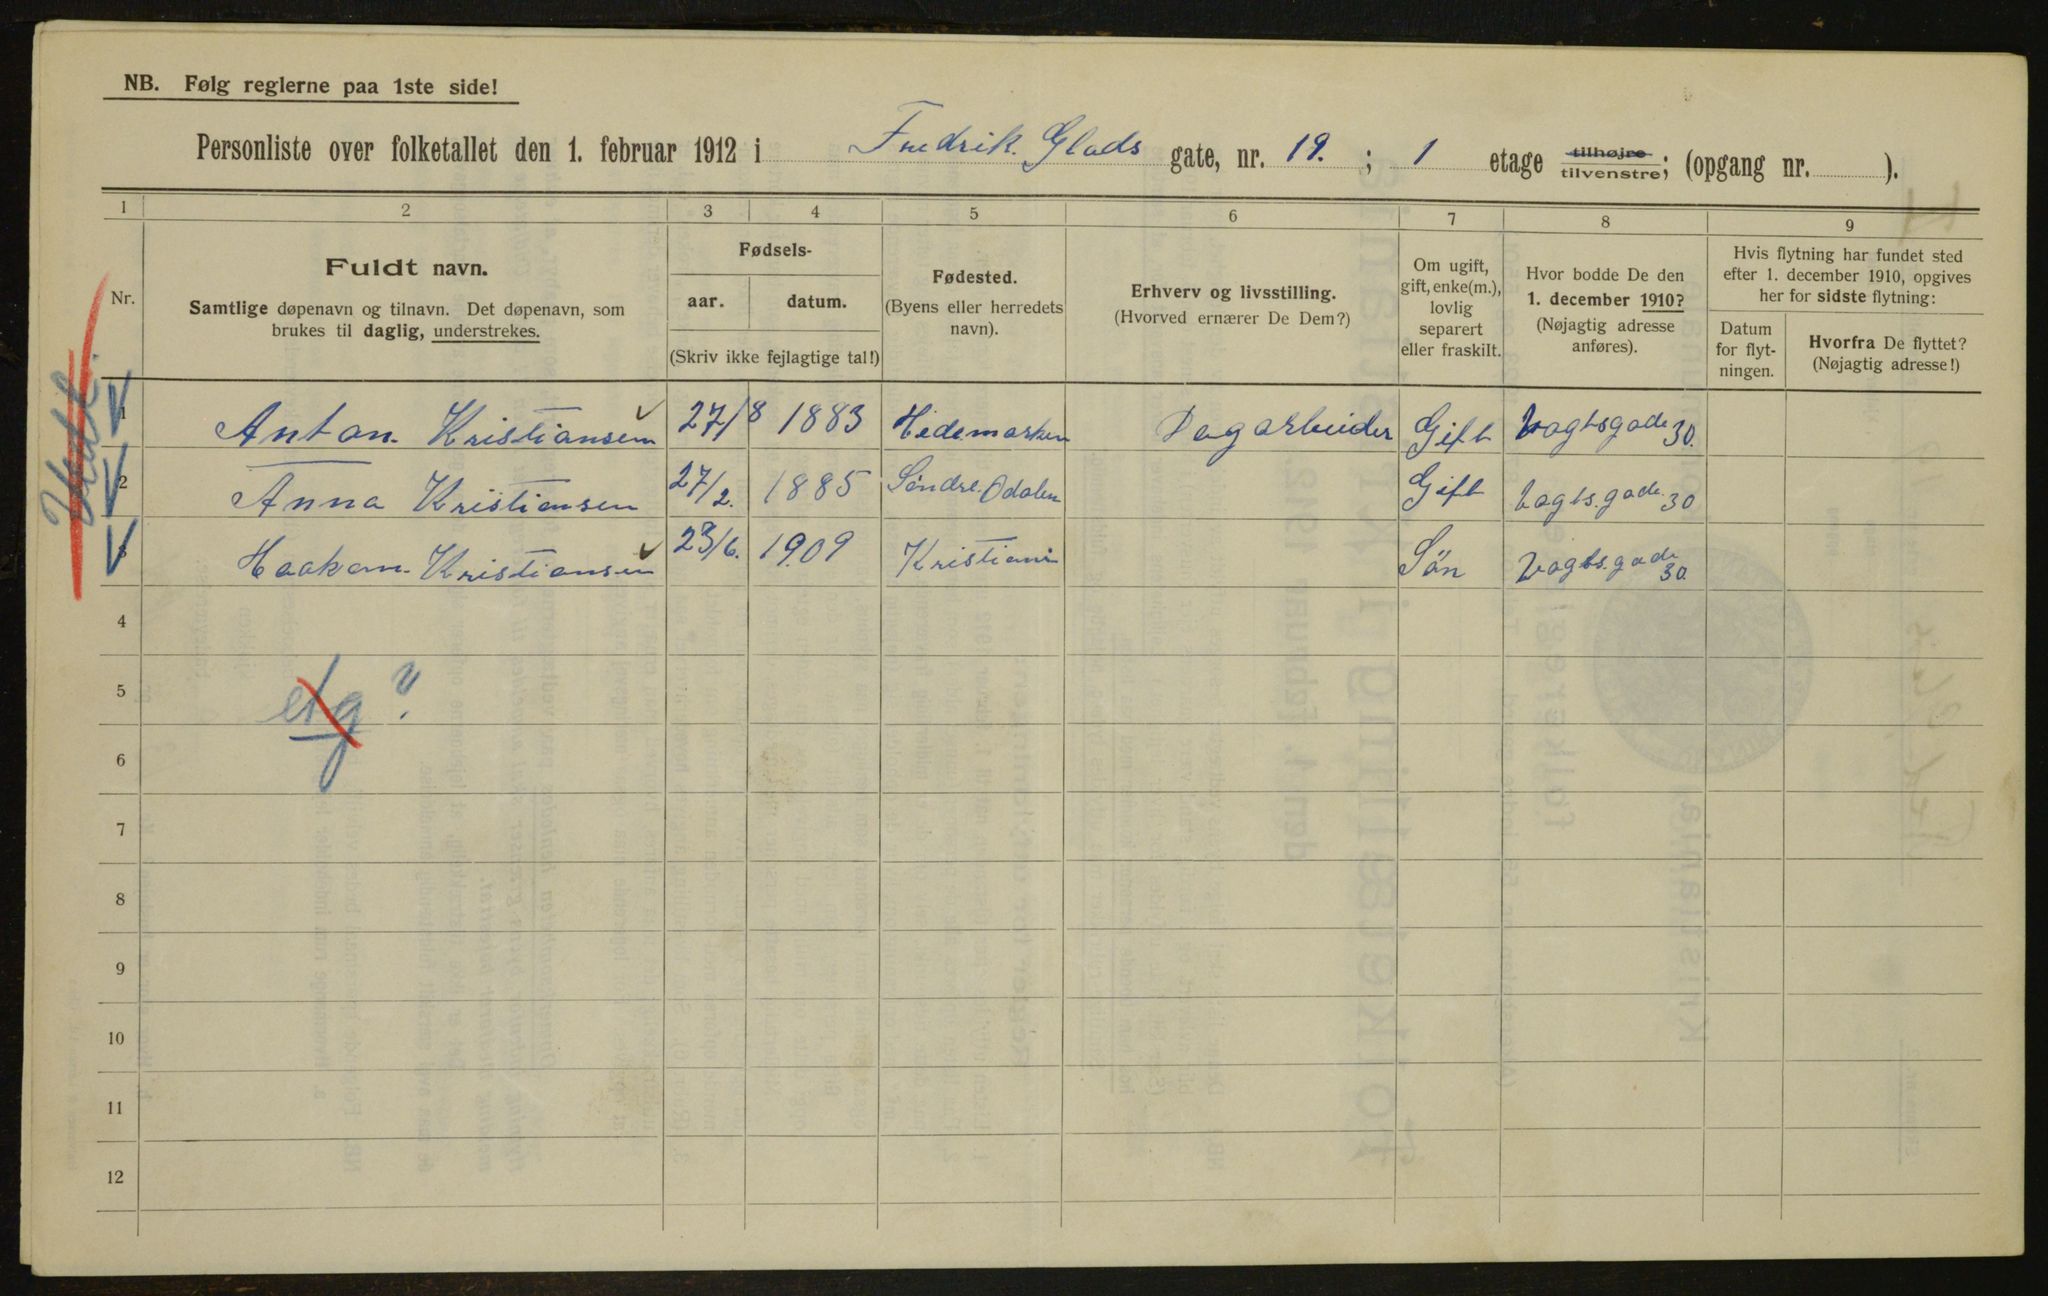 NB. Følg reglerne paa 1ste side!
Personliste over folketallet den 1. februar 1912 i Fredrik. Glads gate, nr. 19. ; 1 etage tilhøjre tilvenstre; (opgang nr. ).
1 2 3 4 5 6 7 8 9
Nr.
Fuldt navn.
Samtlige døpenavn og tilnavn. Det døpenavn, som
brukes til daglig, understrekes.
Fødsels-
aar. datum.
(Skriv ikke fejlagtige tal!)
Fødested.
(Byens eller herredets
navn).
Erhverv og livsstilling.
(Hvorved ernærer De Dem?)
Om ugift,
gift, enke(m.),
lovlig
separert
eller fraskilt.
Hvor bodde De den
1. december 1910?
(Nøjagtig adresse
anføres).
Hvis flytning har fundet sted
efter 1. december 1910, opgives
her for sidste flytning:
Datum
for flyt-
ningen.
Hvorfra De flyttet?
(Nøjagtig adresse!)
1 Anton. Kristiansen 27/8 1883 Hedemarken Dagarbeider Gift Vogtsgade 30.
2 Anna Kristiansen 27/2. 1885 Søndre. Odalen Gift Vogts.gade. 30
3 Haakon. Kristiansen 23/6. 1909 Kristiania Sön Vogts.gade 30.
4
5 etg ?
6
7
8
9
10
11
12